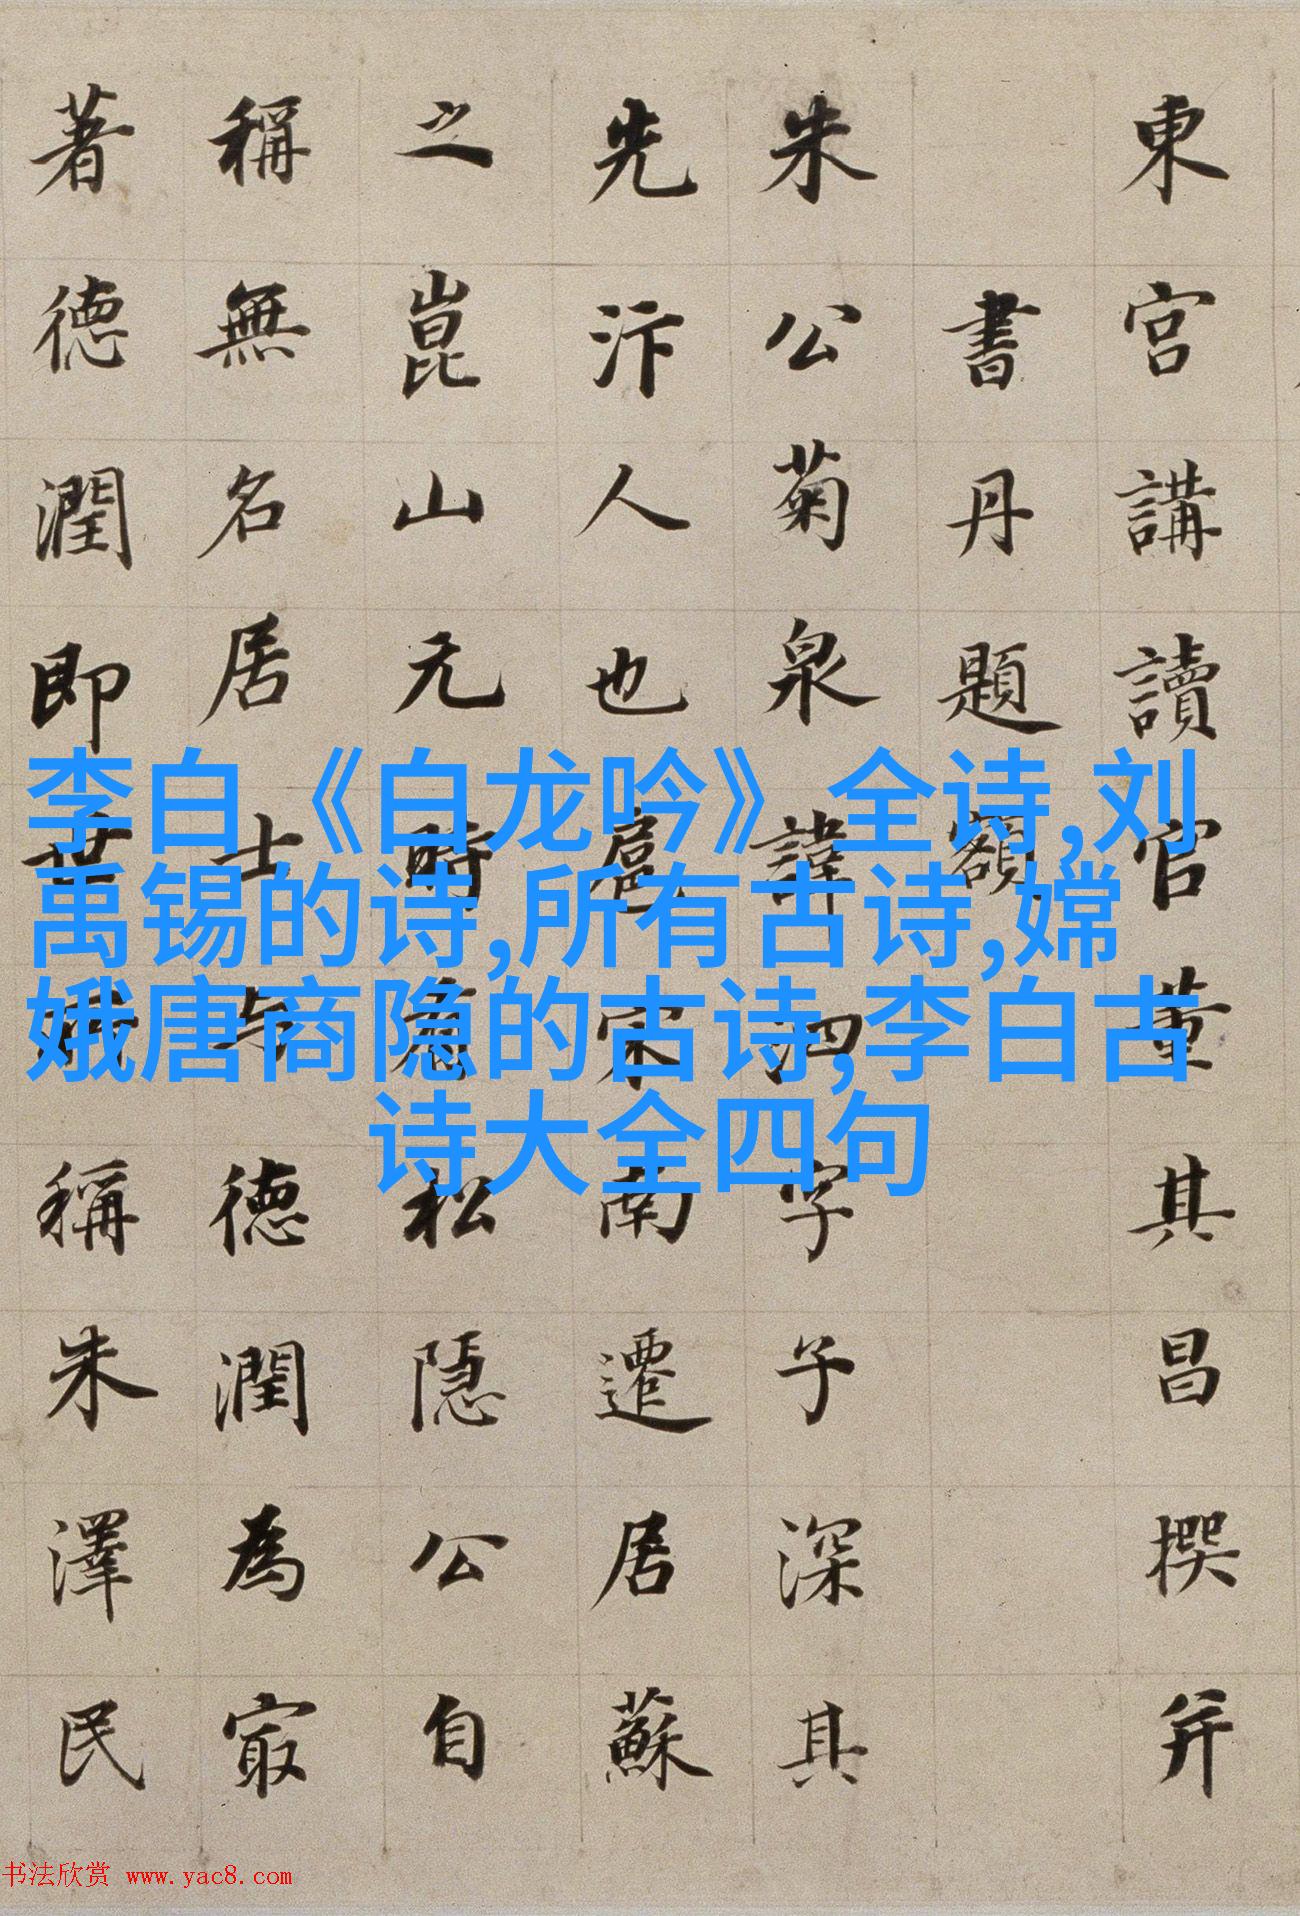 東宮講讀官董其昌撰并
書丹題額
朱公菊泉諱泗字子深其
先汴人也扈宋南遷居蘇
之崑山元時松隱公自
稱無名居士与德潤為冣
著德潤即世稱朱澤民
李白《白龙吟》全诗,刘
禹锡的诗,所有古诗,嫦
娥唐商隐的古诗,李白古
诗大全四句
书法欣赏 www.yac8.com